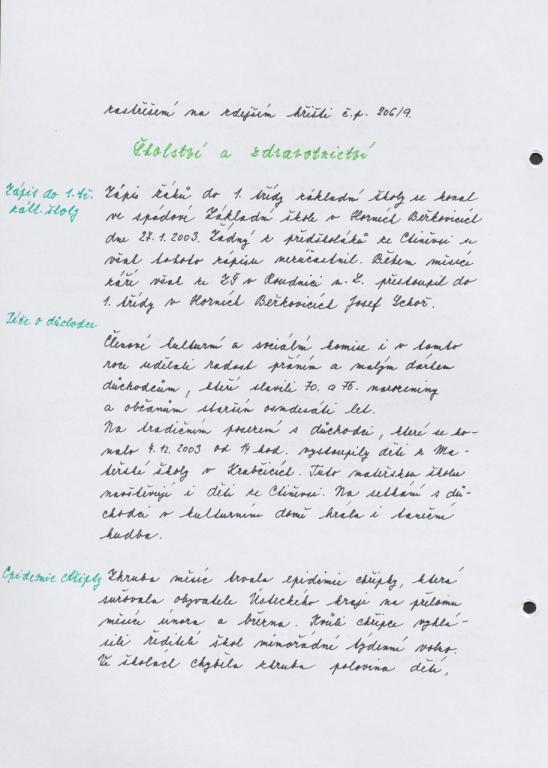 zastřešení na zdejším hřišti č.p. 206/9.
Školství a zdravotnictví
Zápis do 1. tř.
zákl. školy
Zápis žáků do 1. třídy základní školy se konal
ve spádové Základní škole v Horních Beřkovicích
dne 27.1.2003. Žádný z předškoláků ze Ctiněvsi se
však tohoto zápisu nezúčastnil. Během měsíce
září však ze ZŠ v Roudnici n. L. přestoupil do
1. třídy v Horních Beřkovicích Josef
Péče o důchodce
Členové kulturní a sociální komise i v tomto
roce udělali radost přáním a malým dárkem
důchodcům, kteří slavili 70. a 75. narozeniny
a občanům starším osmdesáti let.
Na tradičním posezení s důchodci, které se ko-
nalo 4.12.2003 od 14 hod. vystoupily děti z Ma-
teřské školy v Krabčicích. Tuto mateřskou školu
navštěvují i děti ze Ctiněvsi. Na setkání s dů-
chodci v kulturním domě hrála i taneční
hudba.
Epidemie chřipky
Zhruba měsíc trvala epidimie chřipky, která
sužovala obyvatele Ústeckého kraje na přelomu
měsíce února a března. Kvůli chřipce vyhlá-
sili ředitelé škol mimořádné týdenní volno.
Ve školách chyběla zhruba polovina dětí,